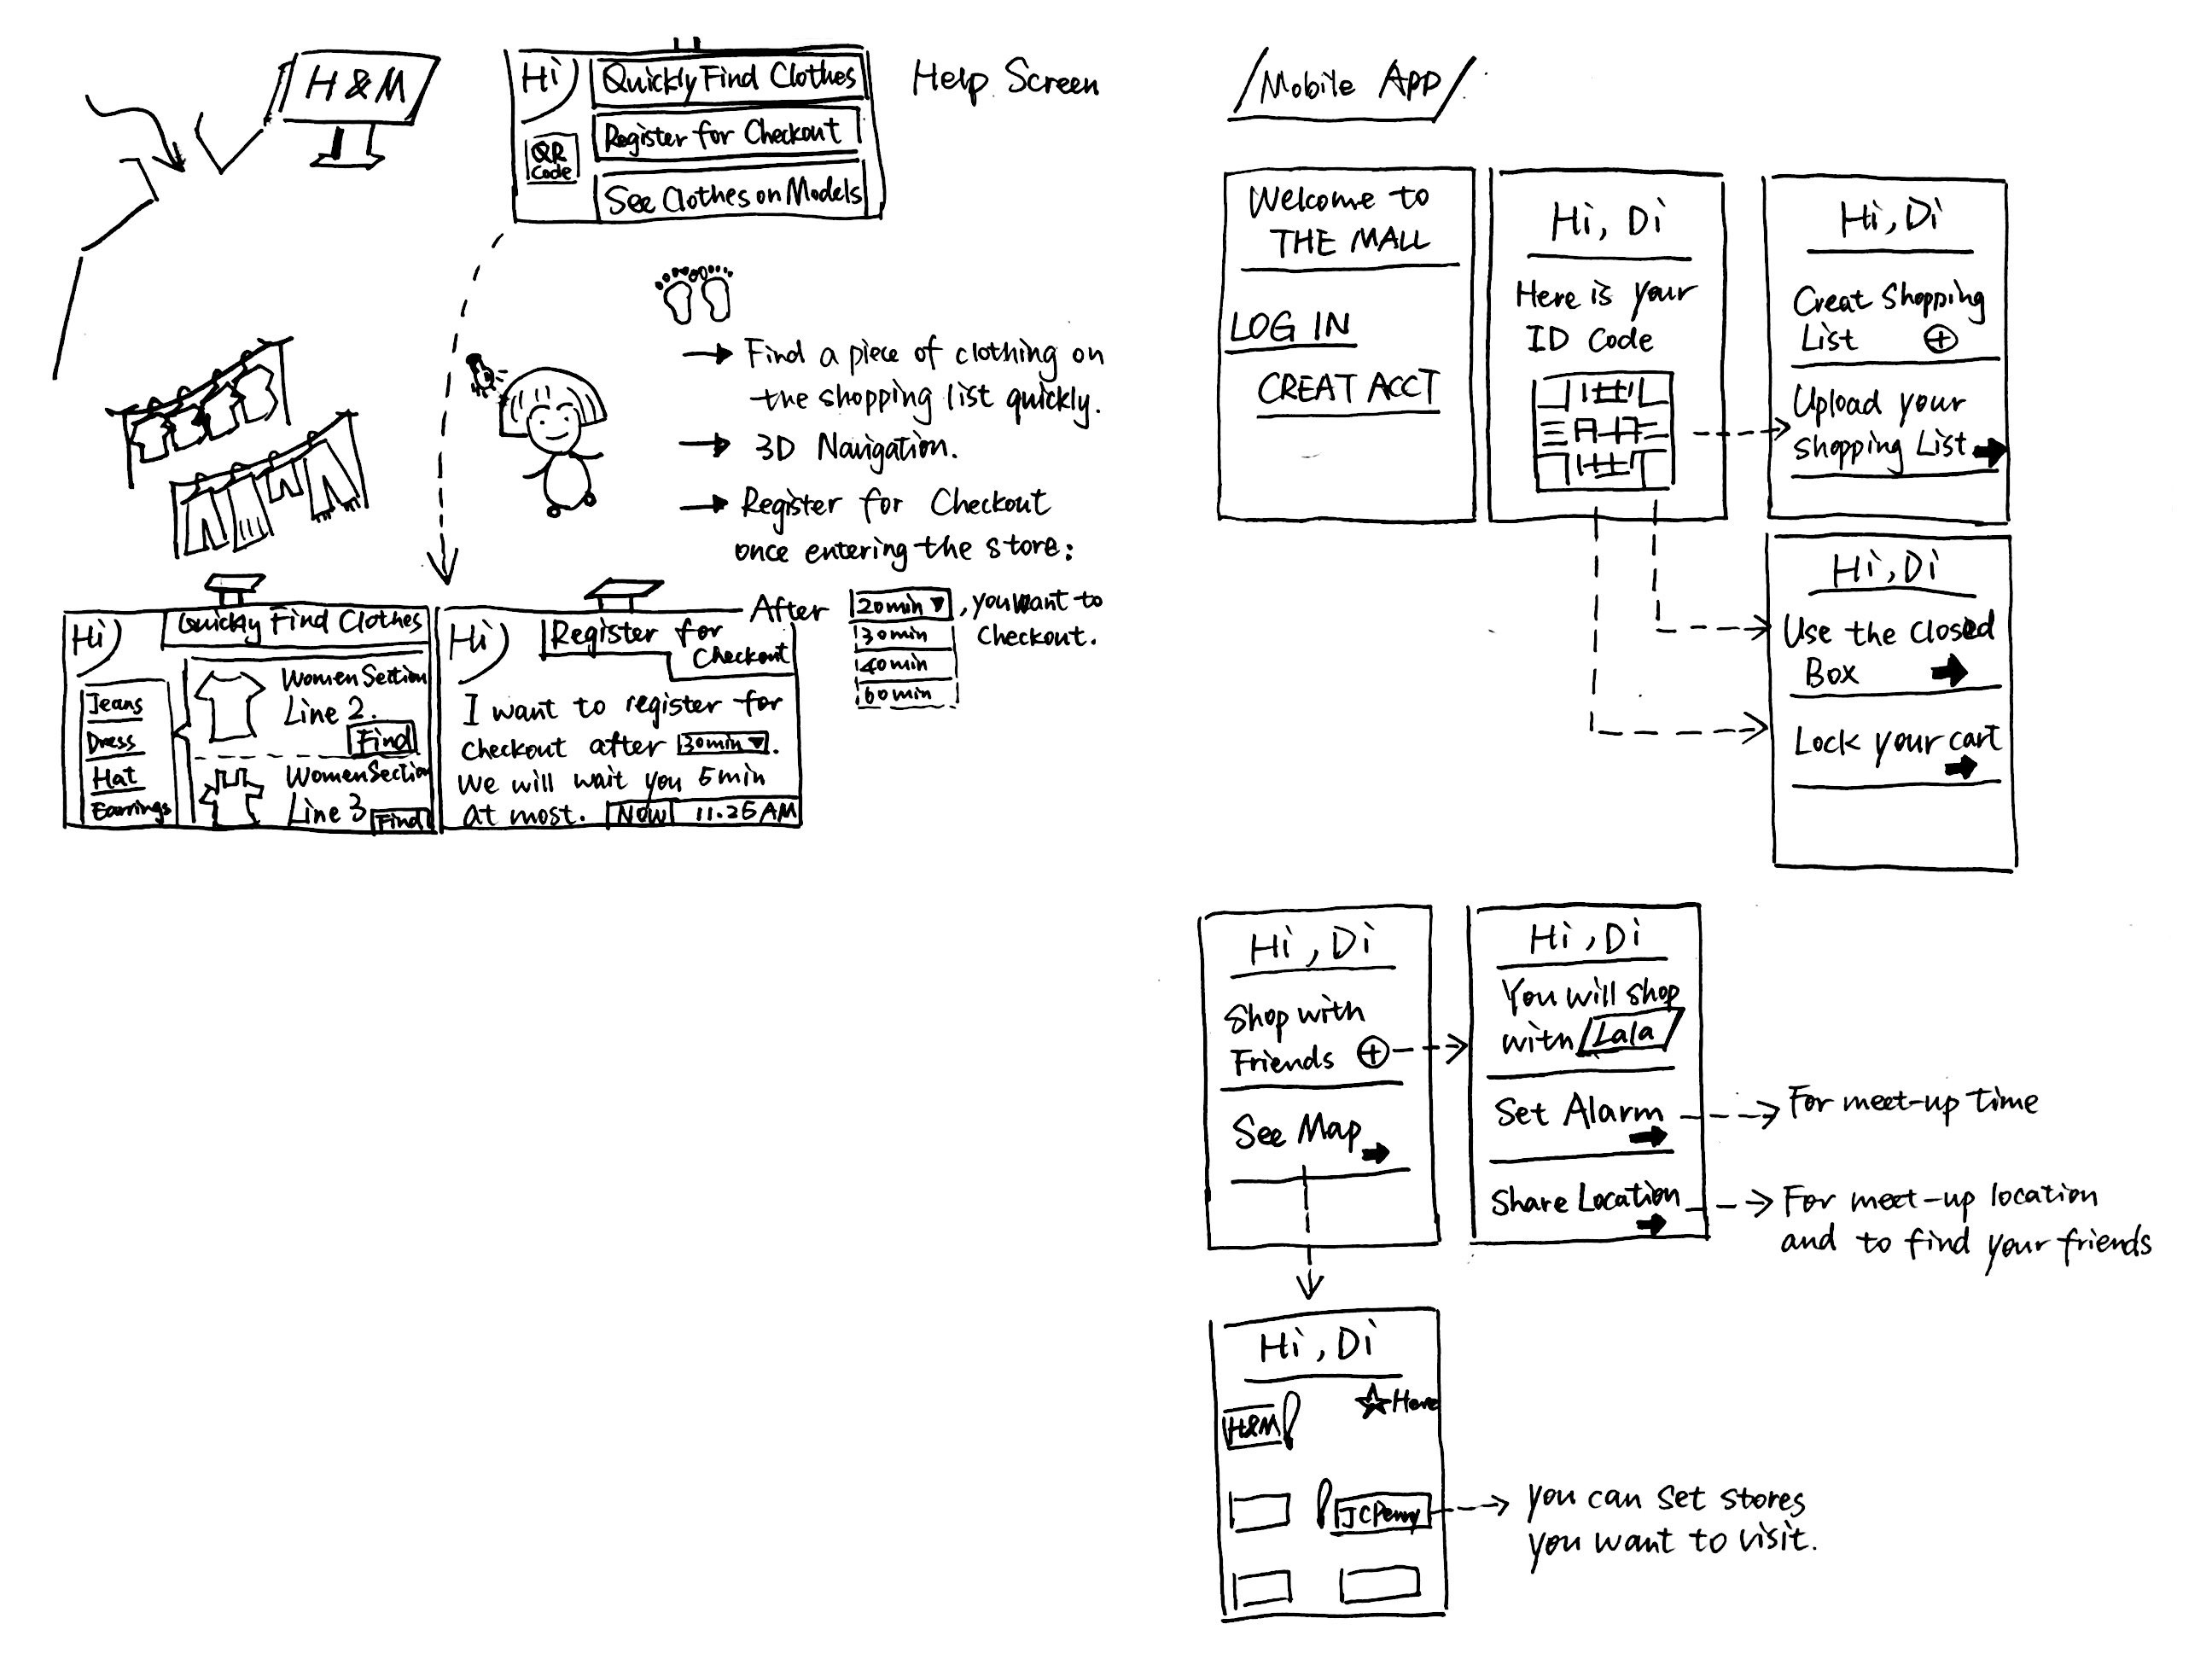 H&M
Hi
Quickly Find Clothes
Register for Checkout
QR
Code
See Clothes on Models
Help Screen
→ Find a piece of clothing on
the shopping list quickly.
→ 3D Navigation.
→ Register for Checkout
once entering the store:
After 20min ▼, you want to
checkout.
30min
40min
60min
Hi
Quickly Find Clothes
Jeans
Dress
Hat
Earrings
Women Section
Line 2.
Find
Women Section
Line 3
Find
Hi
Register for
Checkout
I want to register for
checkout after 30min ▼.
We will wait you 5min
at most.
Now
11.25AM
/Mobile App/
Welcome to
THE MALL
LOG IN
CREAT ACCT
Hi, Di
Here is your
ID Code
Hi, Di
Creat Shopping
List ⊕
Upload your
shopping List
Hi, Di
Use the Closed
Box
Lock your cart
Hi, Di
Shop with
Friends ⊕
See Map
Hi, Di
You will shop
with Lala
Set Alarm
Share Location
For meet-up time
For meet-up location
and to find your friends
Hi, Di
H&M
☆ Here
JCPenny
you can set stores
you want to visit.